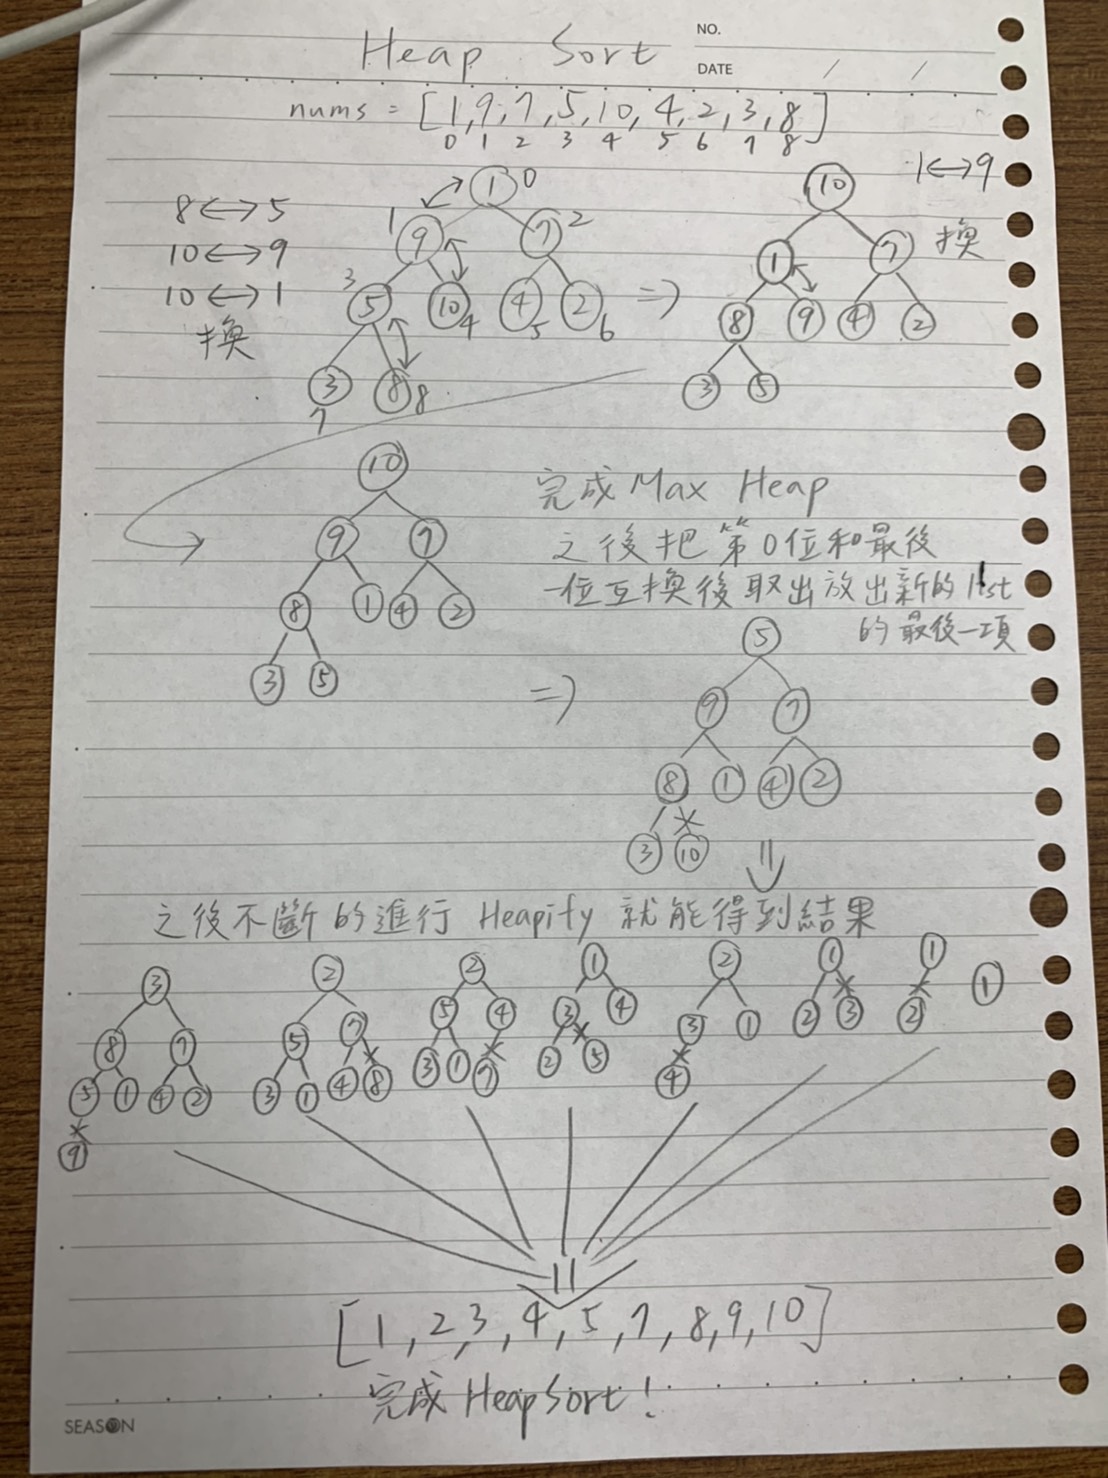 Heap Sort
NO.
DATE / /
nums = [1,9,7,5,10,4,2,3,8]
0 1 2 3 4 5 6 7 8
8↔5
10↔9
10↔1
換
1 0
1 9 7 2
3 5 10 4 4 5 2 6
3 7 8 8
⇒
1↔9
換
10
1 7
8 9 4 2
3 5
10
9 7
8 1 4 2
3 5
完成 Max Heap
之後把第0位和最後
一位互換後取出放出新的list
的最後一項
⇒
5
9 7
8 1 4 2
3 10
之後不斷的進行 Heapify 就能得到結果
3
8 7
5 1 4 2
9
2
5 7
3 1 4 8
2
5 4
3 1 7
1
3 4
2 5
2
3 1
4
1
2 3
1
2
1
[1,2,3,4,5,7,8,9,10]
完成 HeapSort!
SEASON